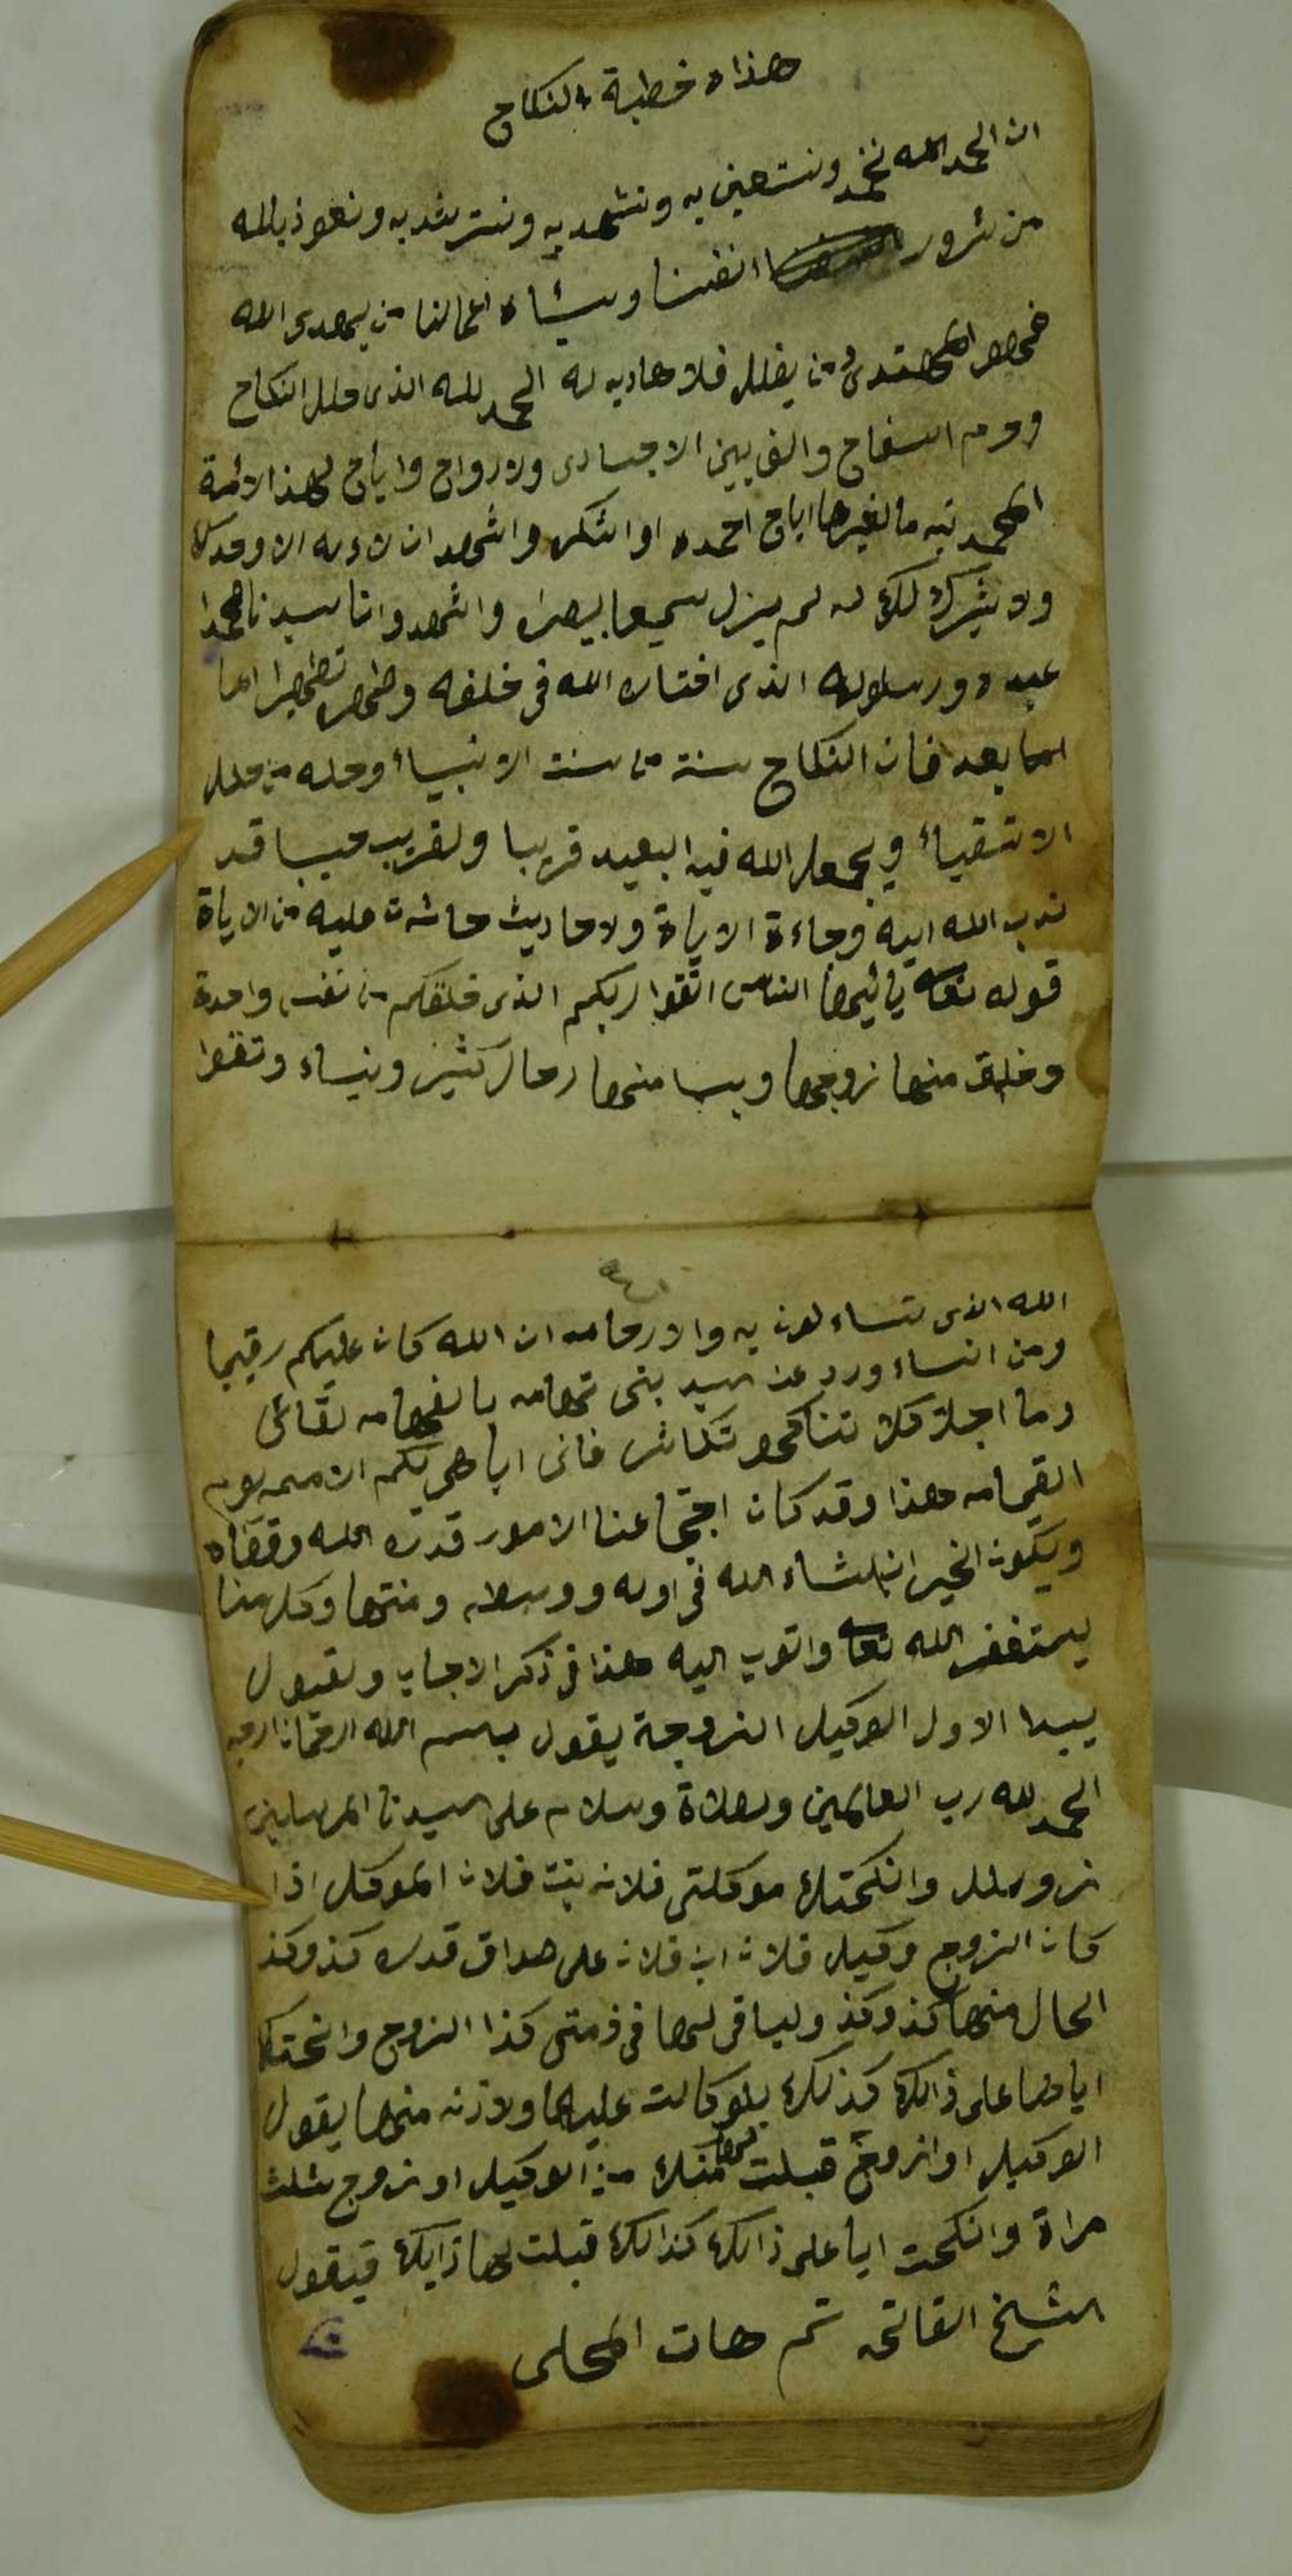 هذاه خطبة النكاح
ان الحمد الله نحمد ونستعين به ونشهد به ونسترشد به ونعوذ بالله
من شرور انفسنا وسيئاه اعمالنا من يهدى الله
فهو المهتدى ومن يظلل فلا هاديه له الحمد لله الذى حلل النكاح
وحرم السفاح والف بين الاجسادى ولارواح واباح لهذا الامة
المحمديه ما لغيرها اباح احمده او اشكره واشهد ان لا اله الا وحدك
ولا شريك لك له لم يزل سميعا بصيرا واشهدوا نا سيدنا محمدا
عبده ورسلوله الذى اختاره الله فى خلقه وطهره تطهيرا اما
اما بعد فان النكاح سنة من سنت الانبياء وحله من حلل
الاتقياء ويجعل الله فيه البعيد قريبا ولقريب حبيبا قد
ندب الله اليه وجاءة الاياة ولاحاديث حاثت عليه من الاياة
قوله تعا يائيها الناس اتقوا ربكم الذى خلقكم من نفس واحدة
وخلق منها زوجها وبسا منها رجال كثير ونساء وتقوا
الله الذى تتساءلون به والارحامه ان الله كان عليكم رقيبا
ومن النساء ورد عن سيد بنى تهامه بالفهامه تقائى
وما اجلة كلا تناكحو تكاثر فانى اباهى بكم الاممه يوم
القيامه هذا وقد كان اجتماعنا الامور قدره الله وقضاه
ويكون الخير انلشاء الله فى اوله ووسطه ومنتها وكل منا
يستغفر الله تعا واتوب اليه هذا فى ذكر الاجاب ولقبول
يبدا الاول الوكيل الزوجة يقول بسم الله الرحمان الرحيم
الحمد لله رب العالمين ولصلاة وسلام على سيدنا المرسلين
وانكحتك موكلتى فلانه بنت فلان الموكل اذا
كان الزوج وكيل فلان ابن فلان على صداق قدره كذ وكذ
الحال منها كذ وكذ ولباقى لها فى ذمتى كذا الزوج وانحتك
اياها على ذالك كذلك بلوكالت عليها ولاذنه منها يقول
الوكيل او الزوج قبلت لها منك من الوكيل او زوج ثلث
مراة وانكحت ايا على ذالك كذالك قبلت لها ذالك فيقول
الشيخ الفاتحه تم هات المحلى